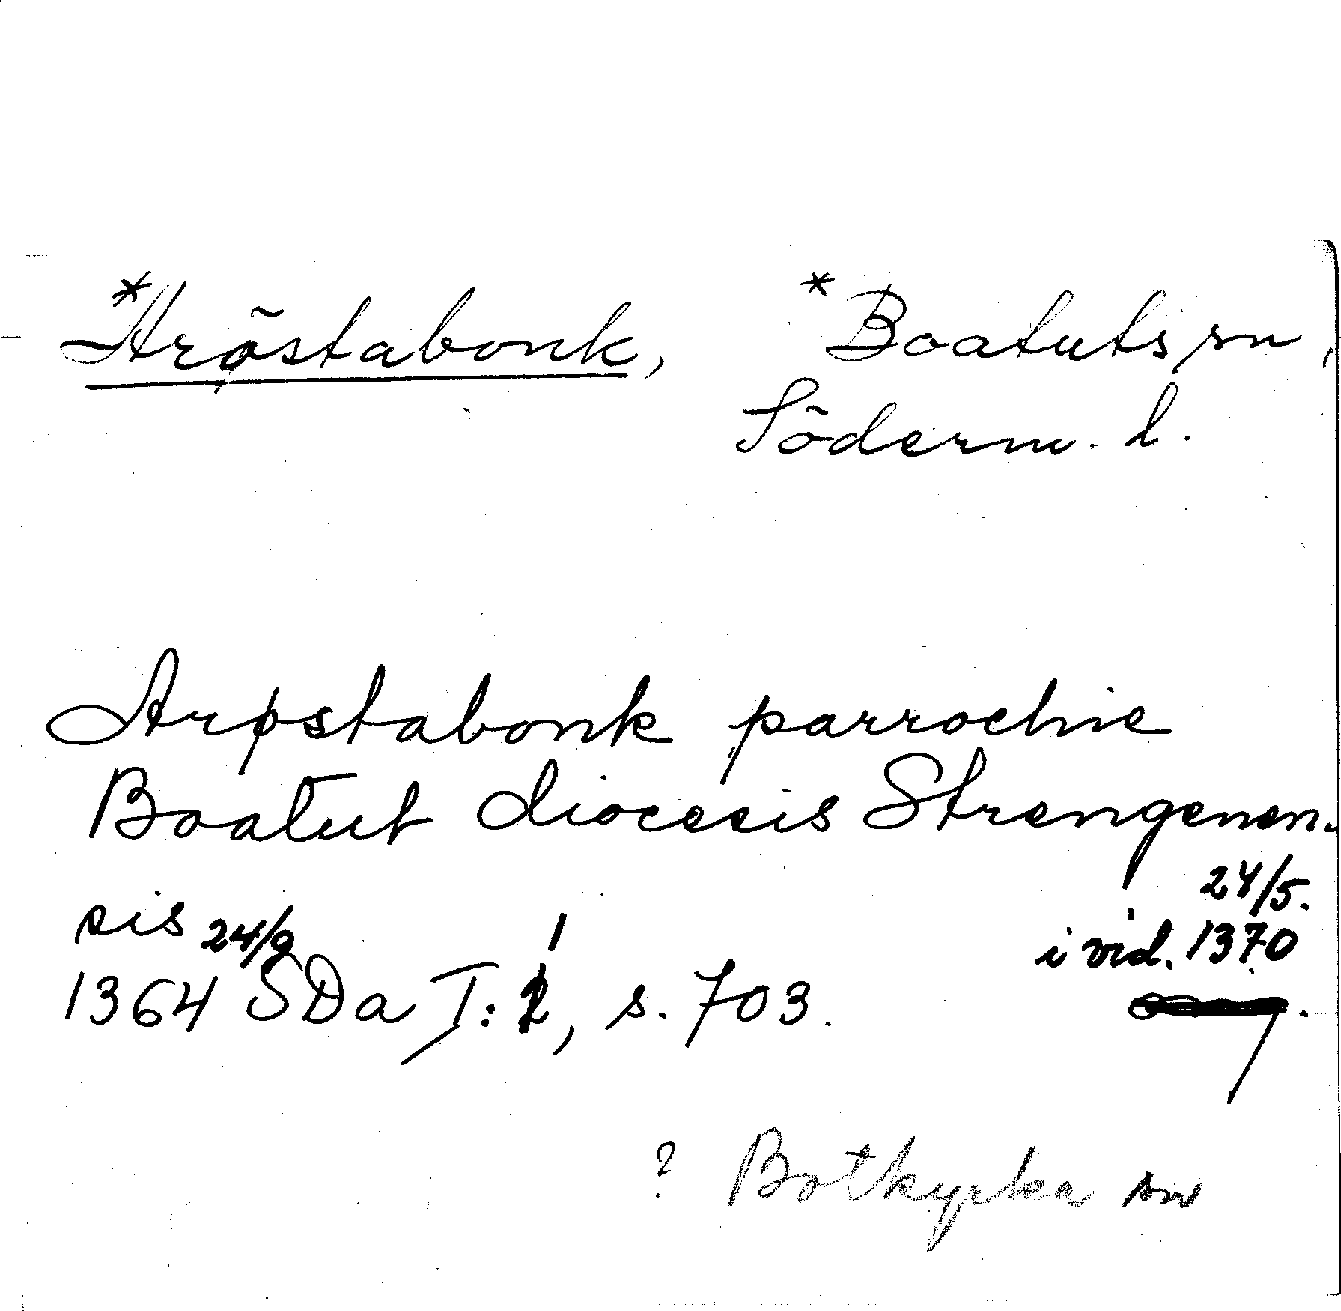 *Arøstabonk, *Boatuts sn,
Söderm. l.
Arøstabonk parrochie
Boatut diocesis Strengenen-
sis 24/9 24/5.
1364 SDa I:1, s. 703. i vid. 1370
? Botkyrka sn